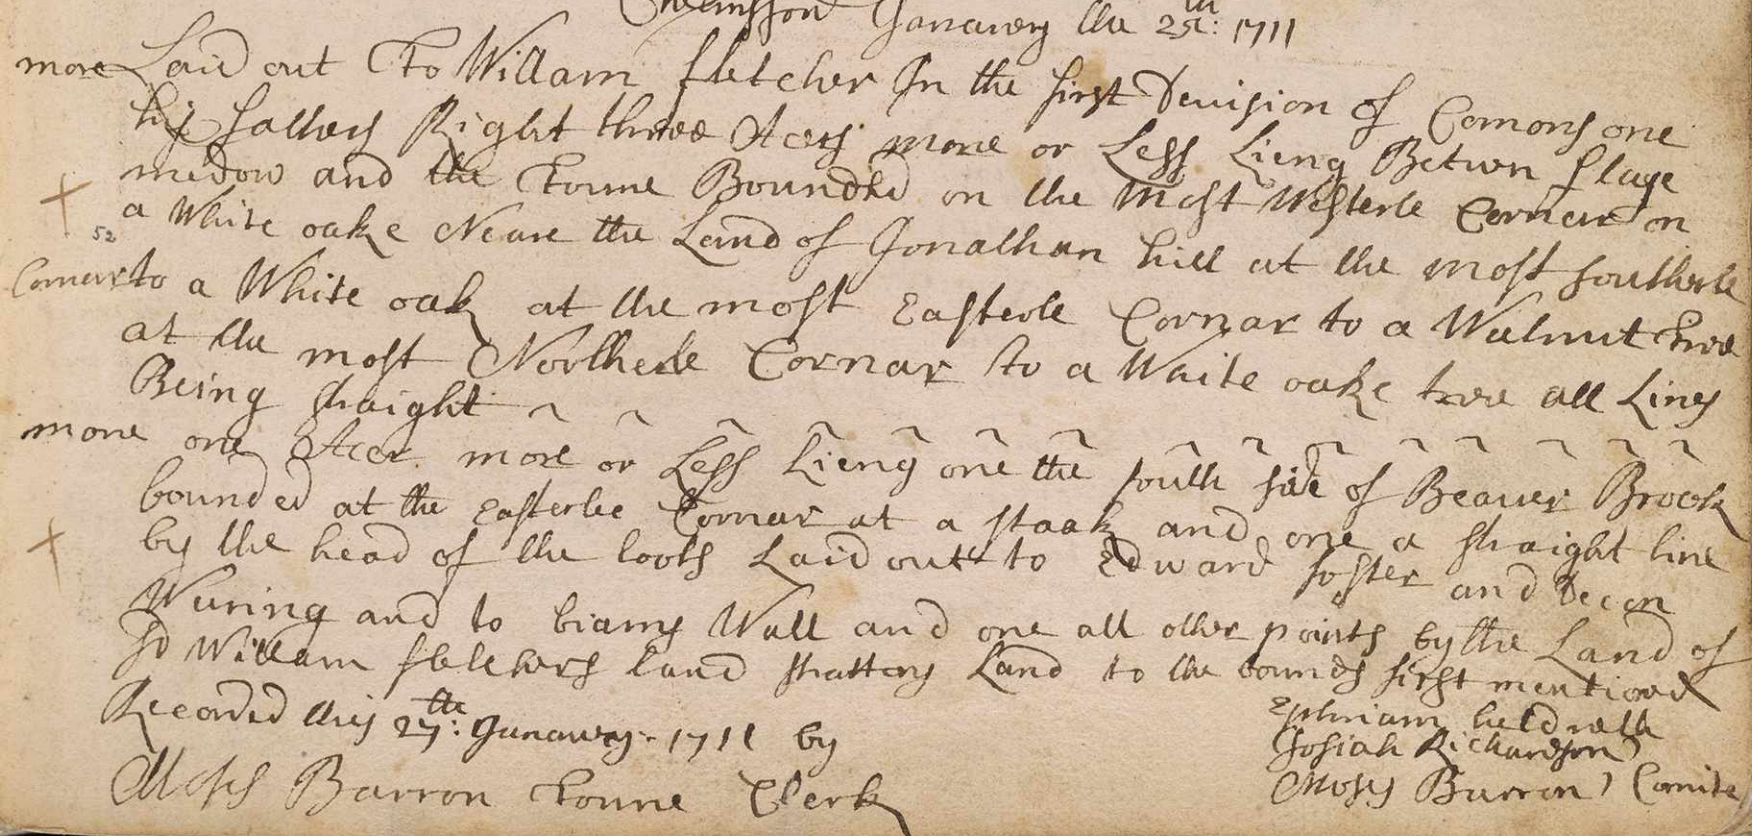 Chelmsford Janawery the 25th: 1711
more Laid out To Willam fletcher In the first Devision of Comons one
his fathers Right three Acers more or Less Lieng Betwn flage
medow and the Toune Bounded on the Most Westerle Cornear on
a White oake Neare the Land of Jonathan hill at the most southerle
52
Cornear to a White oak at the most Easterle Cornar to a Walnut tree
at the most Northerle Cornar to a White oake tree all Lines
Being straight
more one Acer more or Less Lieng one the south side of Beauer Brook
bounded at the Easterlee Cornar at a staak and one a straight line
by the head of the loots Laid out to Edward foster and Decon
Waring and to biams Wall and one all other points by the Land of
sd Willam fletchers land Land to the bounds first mentioned
Recorded this 27th: Janawery 1711 by
Moses Barron Toune Clerk
Ephriam heldreth
Josiah Richardson
Moses Barron Comite